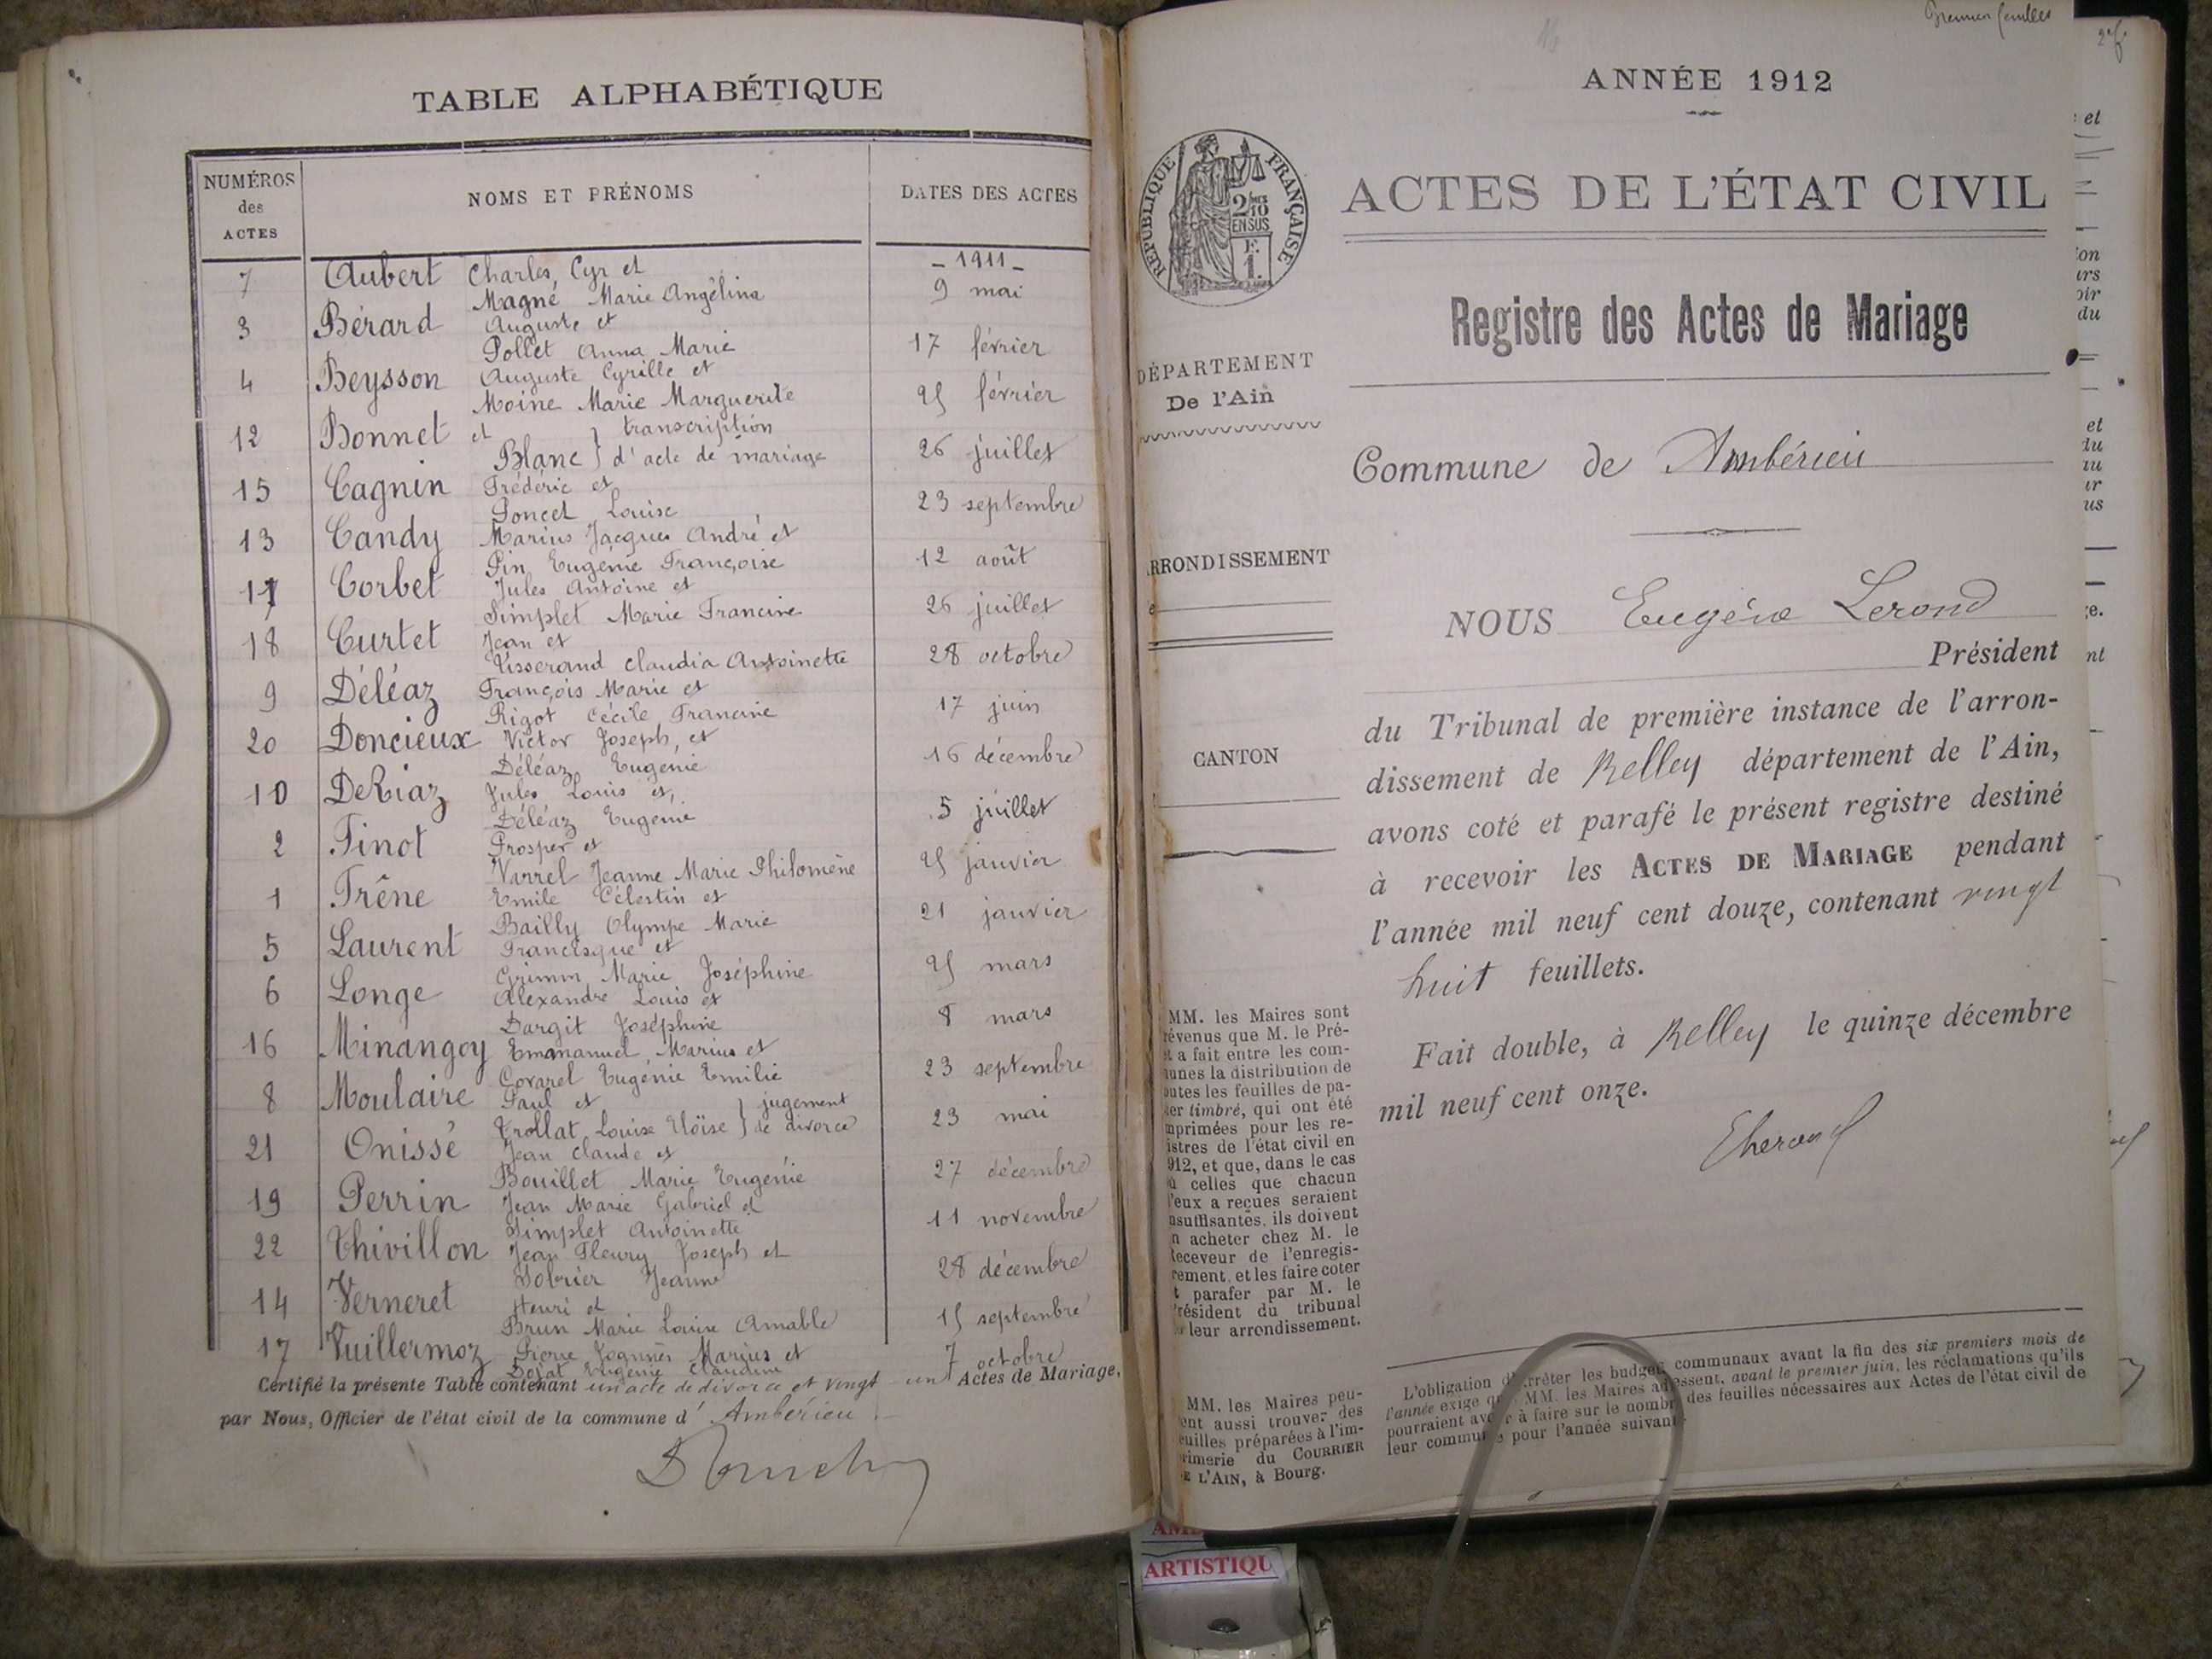 TABLE ALPHABÉTIQUE
NUMÉROS
des
ACTES
NOMS ET PRÉNOMS
DATES DES ACTES
7 Aubert Charles, Cyr et
- 1911 -
Magné Marie Angélina 9 mai
3 Bérard Auguste et
Pollet Anna Marie 17 février
4 Beysson Auguste Cyrille et
Moine Marie Marguerite 25 février
12 Bonnet et } transcription
Blanc } d'acte de mariage 26 juillet
15 Cagnin Frédéric et
Poncet Louise 23 septembre
13 Candy Marius Jacques André et
Pin Eugénie Françoise 12 août
11 Corbet Jules Antoine et
Simplet Marie Francine 26 juillet
18 Curtet Jean et
Tisserand Claudia Antoinette 28 octobre
9 Déléaz François Marie et
Rigot Cécile Francine 17 juin
20 Doncieux Victor Joseph, et
Déléaz Eugénie 16 décembre
10 DeRiaz Jules Louis et,
Déléaz Eugénie 5 juillet
2 Finot Prosper et
Varrel Jeanne Marie Philomène 25 janvier
1 Frêne Emile Célestin et
Bailly Olympe Marie 21 janvier
5 Laurent Francisque et
Grimm Marie Joséphine 25 mars
6 Longe Alexandre Louis et
Dargit Joséphine 8 mars
16 Minangoy Emananuel, Marius et
Covarel Eugénie Emilie 23 septembre
8 Moulaire Paul et } jugement
Trollat Louise Eloïse } de divorce 23 mai
21 Onissé Jean Claude et
Bouillet Marie Eugénie 27 décembre
19 Perrin Jean Marie Gabriel et
Simplet Antoinette 11 novembre
22 Thivillon Jean Fleury Joseph et
Jeanne 28 décembre
14 Verneret Henri et
Brun Marie Louise Amable 15 septembre
17 Vuillermoz Pierre Joannès Marius et
Eugénie Claudine 7 octobre
Certifié la présente Table contenant un acte de divorce et vingt - un Actes de Mariage,
par Nous, Officier de l'état civil de la commune d' Ambérieu
ANNÉE 1912
RÉPUBLIQUE FRANÇAISE
2/10
EN SUS
F.
1.
ACTES DE L'ÉTAT CIVIL
Registre des Actes de Mariage
DÉPARTEMENT
De l'Ain
Commune de Ambérieu
RRONDISSEMENT
NOUS Eugène Lerond
Président
CANTON
du Tribunal de première instance de l'arron-
dissement de Belley département de l'Ain,
avons coté et parafé le présent registre destiné
à recevoir les ACTES DE MARIAGE pendant
l'année mil neuf cent douze, contenant vingt
huit feuillets.
Fait double, à Belley le quinze décembre
mil neuf cent onze.
MM. les Maires sont
révenus que M. le Pré-
t a fait entre les com-
unes la distribution de
outes les feuilles de pa-
ier timbré, qui ont été
mprimées pour les re-
istres de l'état civil en
912, et que, dans le cas
ù celles que chacun
'eux a reçues seraient
nsuffisantes, ils doivent
n acheter chez M. le
Receveur de l'enregis-
rement, et les faire coter
t parafer par M. le
Président du tribunal
leur arrondissement.
MM. les Maires peu-
ent aussi trouver des
euilles préparées à l'im-
rimerie du COURRIER
E L'AIN, à Bourg.
L'obligation d'arrêter les budgets communaux avant la fin des six premiers mois de
l'année exige que MM. les Maires adressent, avant le premier juin, les réclamations qu'ils
pourraient avoir à faire sur le nombre des feuilles nécessaires aux Actes de l'état civil de
leur commune pour l'année suivante.
ARTISTIQU